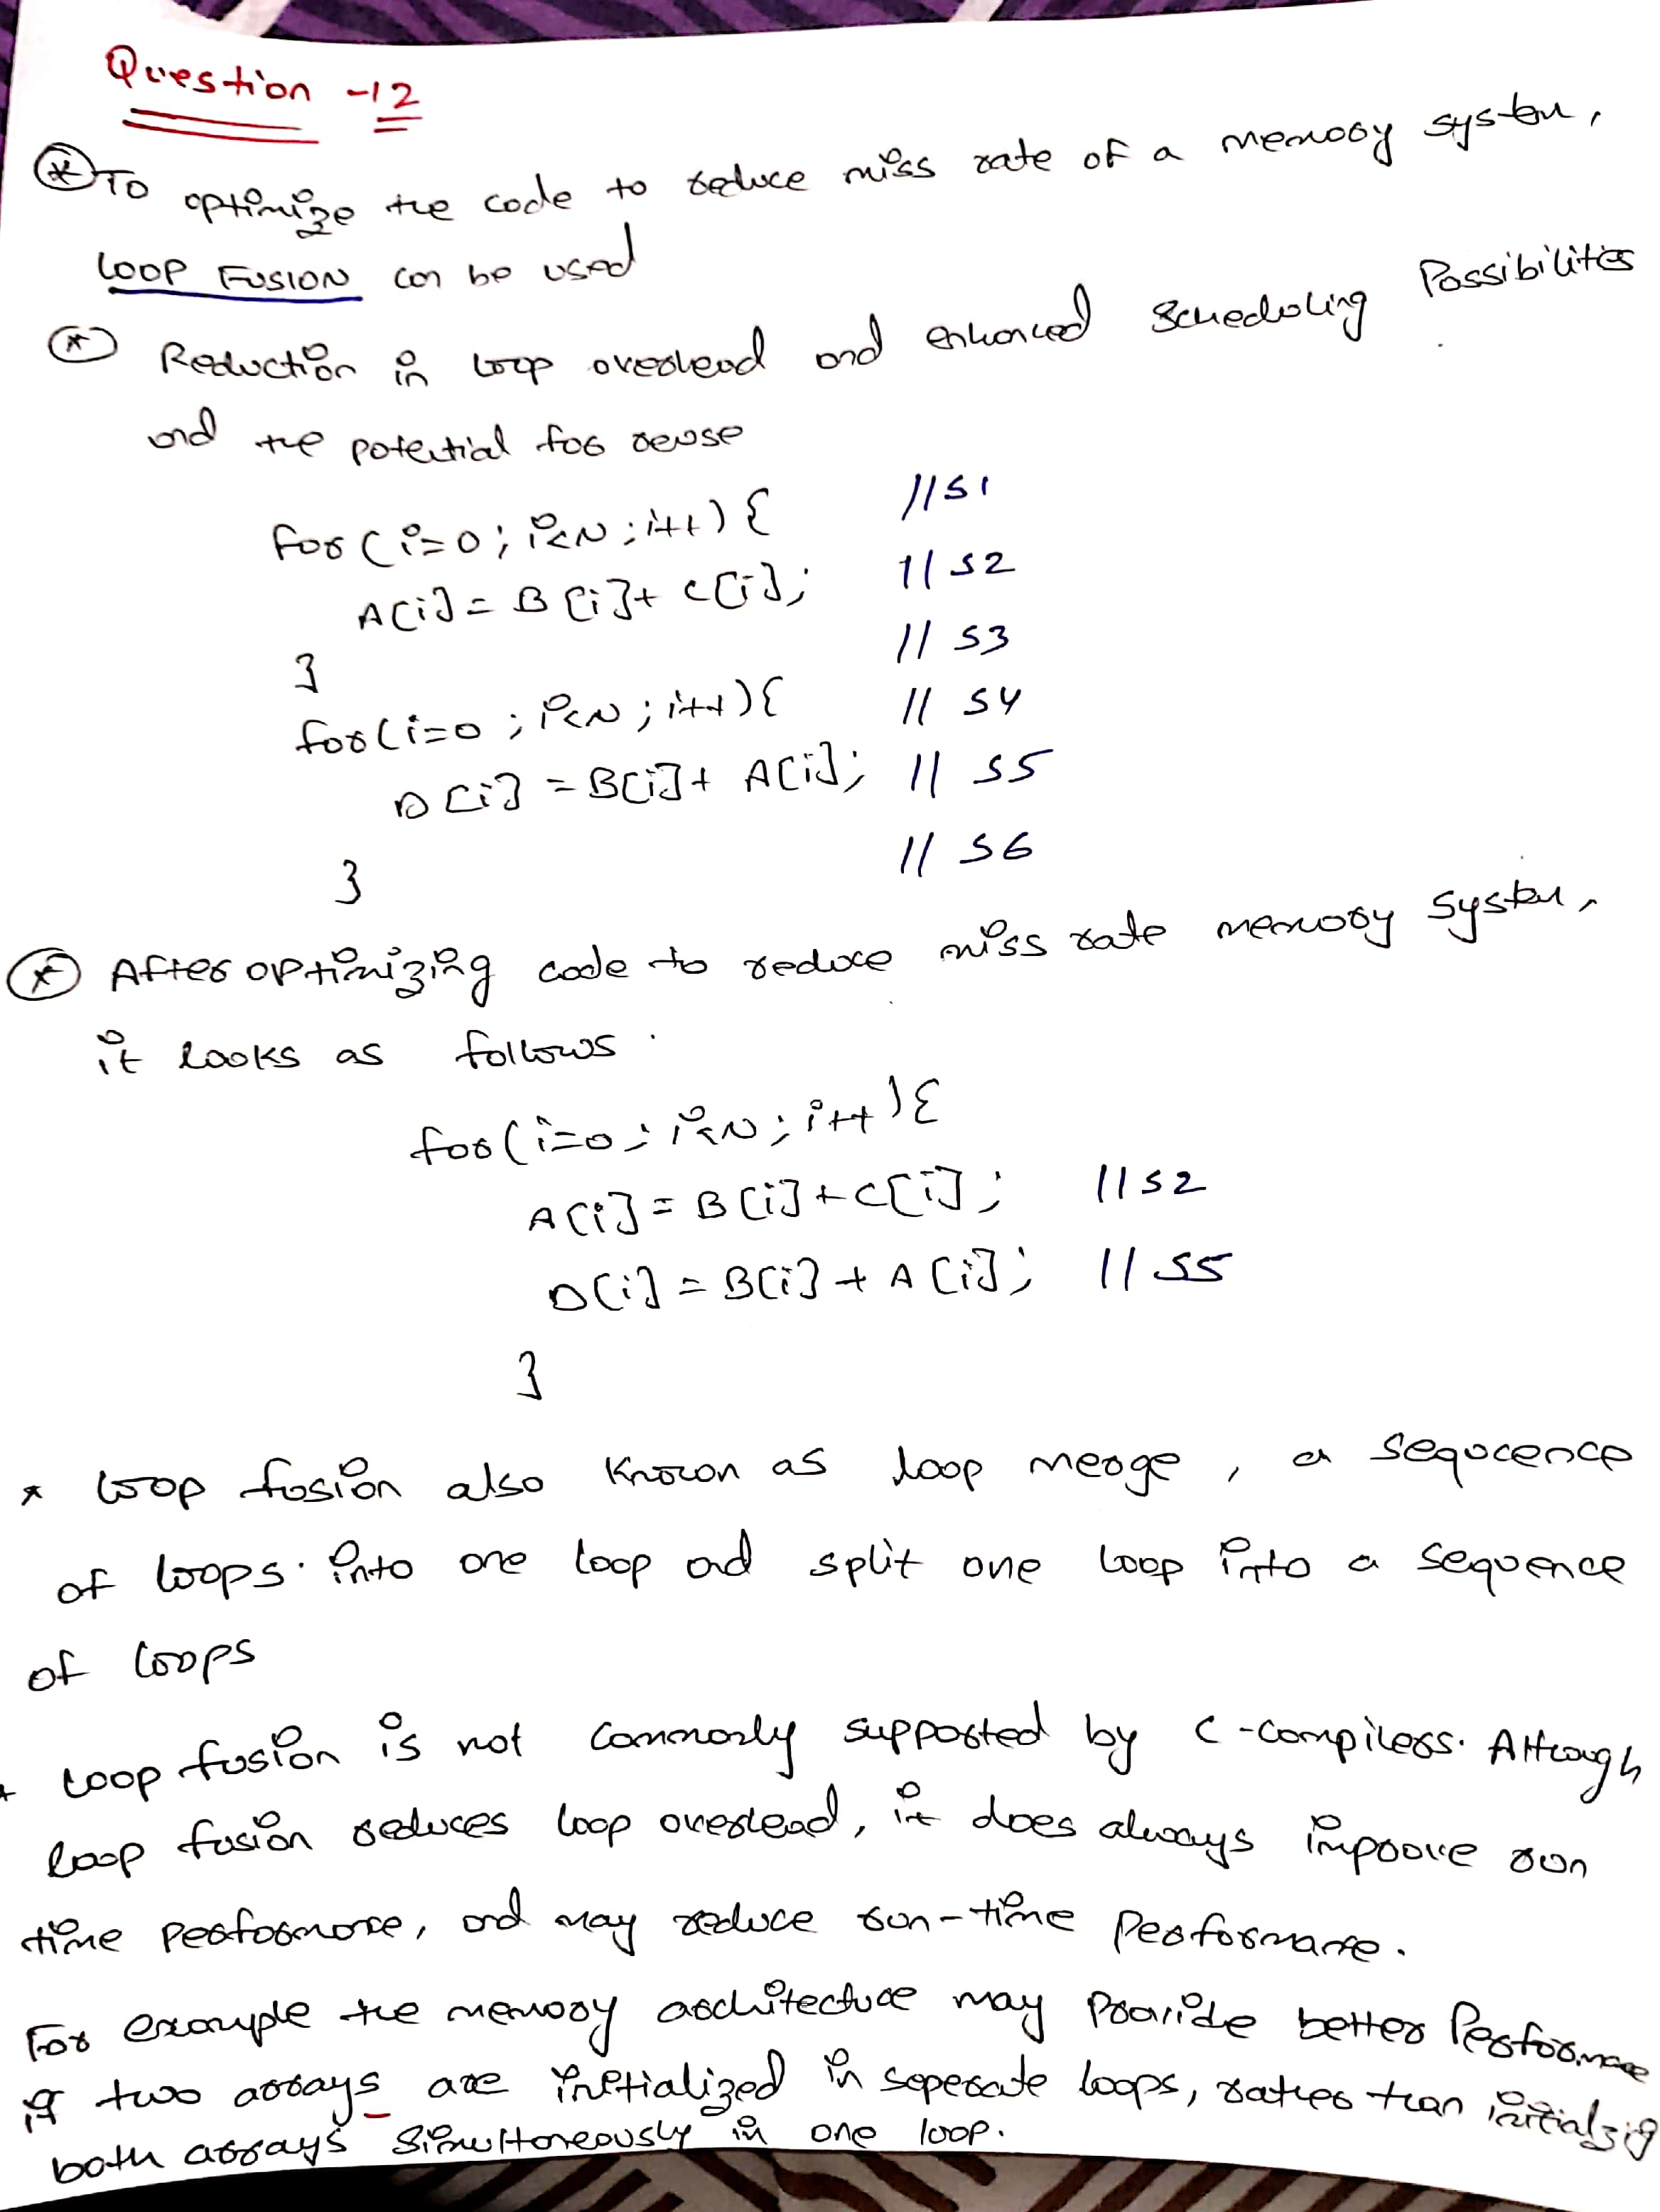 Question -12
* To optimize the code to reduce miss rate of a memory system,
LOOP FUSION can be used
* Reduction in loop overhead and enhanced scheduling Possibilities
and the potential for reuse
for(i=0; i<N; i++){ //S1
A[i] = B[i] + C[i]; //S2
} // S3
for(i=0; i<N; i++){ // S4
D[i] = B[i] + A[i]; // S5
} // S6
* After optimizing code to reduce miss rate memory system,
it looks as follows.
for(i=0; i<N; i++){
A[i] = B[i] + C[i]; //S2
D[i] = B[i] + A[i]; //S5
}
* Loop fusion also known as loop merge, a sequcence
of loops. into one loop and split one loop into a sequence
of loops
* Loop fusion is not commonly supported by C-compilers. Although
loop fusion reduces loop overhead, it does always improve run
time performance, and may reduce run-time Performance.
For example the memory architecture may Provide better Performance
if two arrays are initialized in seperate loops, rather than initialzig
both arrays simultaneously in one loop.